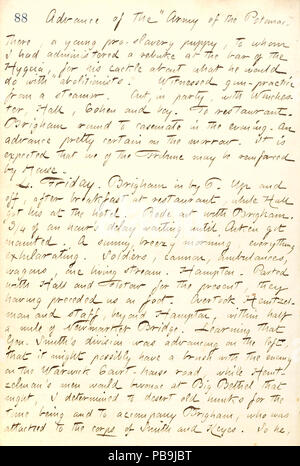 88
Advance of the "Army of the Potomac.
there, a young pro-slavery puppy, to whom
I had administered a rebuke at the bar of the
Hygeia, for his cackle about what he would
do with "abolitionists." Witnessed gun-practice
from a steamer. Out, in party, with Winches-
ter Hall, Cohen and boy. To restaurant.
Brigham round to casemate in the evening. An
advance pretty certain on the morrow. It is
expected that we of the Tribune may be reinforced
by House.
4. Friday. Brigham in by 6. Up and
off, after breakfast at restaurant, while Hall
got his at the hotel. Rode out with Brigham.
3/4 of an hour's delay waiting until got
mounted. A sunny, breezy morning, everything
exhilarating. Soldiers, cannon, ambulances,
wagons, one living stream. Hampton. Parted
with Hall and for the present, they
having preceded us on foot. Overtook Heintzel-
man and staff, beyond Hampton, within half
a mile of Newmarket Bridge. Learning that
Gen. Smith's division was advancing on the left,
that it might possibly have a brush with the enemy
on the Warwick Court-house road, while Heint-
zelman's men would bivouac at Big Bethel that
night, I determined to desert old hunks for the
time being and to accompany Brigham, who was
attached to the corps of Smith and Keyes. So he,
alamy
PB9JBT